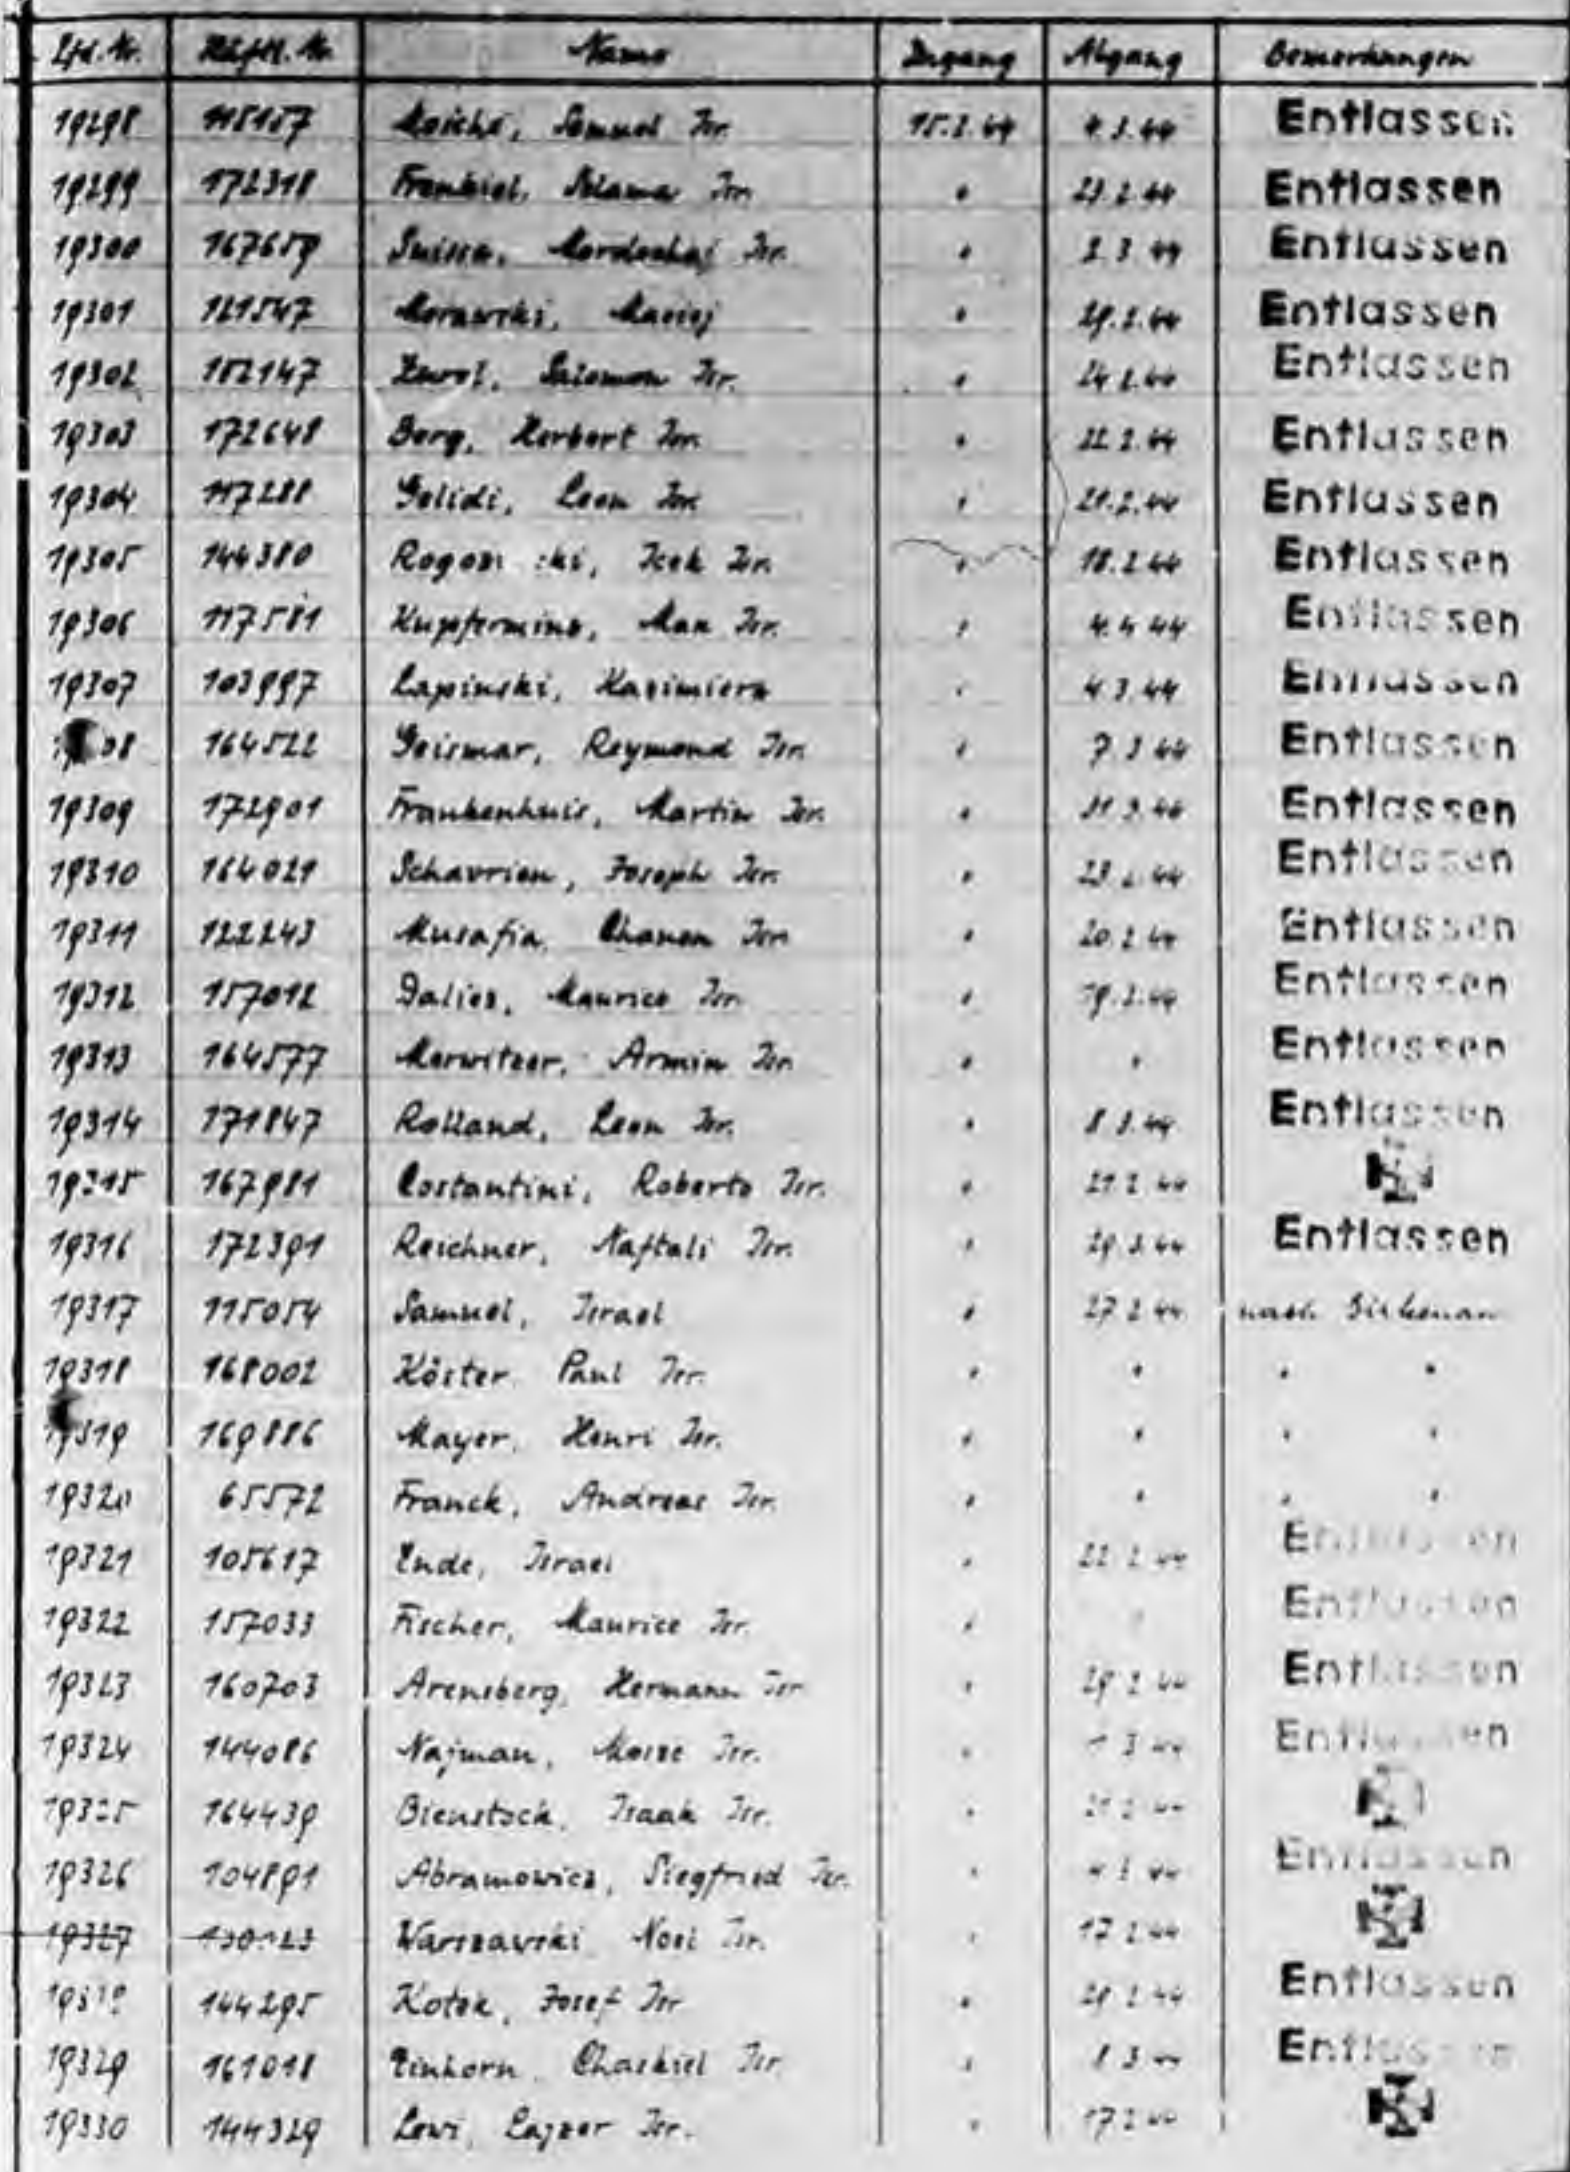 Lfd. Nr. Häftl. Nr. Name Zugang Abgang Bemerkungen
19298 Samuel Isr. 15.2.44 4.3.44 Entlassen
19299 172318 Frenkiel, Szlama Isr. " 23.2.44 Entlassen
19300 167659 Suissa, Mordechaj Isr. " 2.3.44 Entlassen
19301 121547 Morawski, Maciej " 29.2.44 Entlassen
19302 152147 Salomon Isr. " 24.2.44 Entlassen
19303 172648 Berg, Herbert Isr. " 22.2.44 Entlassen
19304 117288 Gelidi, Leon Isr. " 21.2.44 Entlassen
19305 144380 Icek Isr. " 18.2.44 Entlassen
19306 117581 Kupferminz, Max Isr. " 4.4.44 Entlassen
19307 103997 Lapinski, Kazimierz " 4.3.44 Entlassen
164522 Geismar, Reymond Isr. " 7.3.44 Entlassen
19309 172901 Frankenhuis, Martin Isr. " Entlassen
19310 164021 Schavrien, Joseph Isr. " 23.2.44 Entlassen
19311 122243 Musafia, Chanon Isr. " 20.2.44 Entlassen
19312 157012 Maurice Isr. " 19.2.44 Entlassen
19313 164577 Merwitzer, Armin Isr. " " Entlassen
19314 171847 Rolland, Leon Isr. " 8.3.44 Entlassen
19315 167981 Costantini, Roberto Isr. " 21.2.44
19316 172391 Reichner, Naftali Isr. " Entlassen
19317 115054 Samuel, Israel " 27.2.44 nach Birkenau
19318 168002 Köster, Paul Isr. " " " "
19319 169886 Mayer, Henri Isr. " " " "
19320 65572 Franck, Andreas Isr. " " " "
19321 105617 Ende, Israel " 22.2.44 Entlassen
19322 157033 Fischer, Maurice Isr. " " Entlassen
19323 160703 Arensberg, Hermann Isr. " 29.2.44 Entlassen
19324 144086 Najman, Moize Isr. " Entlassen
19325 164439 Bienstock, Isaak Isr. " 21.2.44
19326 104891 Abramowicz, Siegfried Isr. " Entlassen
19327 Warszawski, Noel Isr. " 17.2.44
144295 Kotek, Josef Isr. " Entlassen
19329 161018 Einhorn, Chaskiel Isr. " 8.3.44 Entlassen
19330 144329 Lewi, Lajzer Isr. " 17.2.44